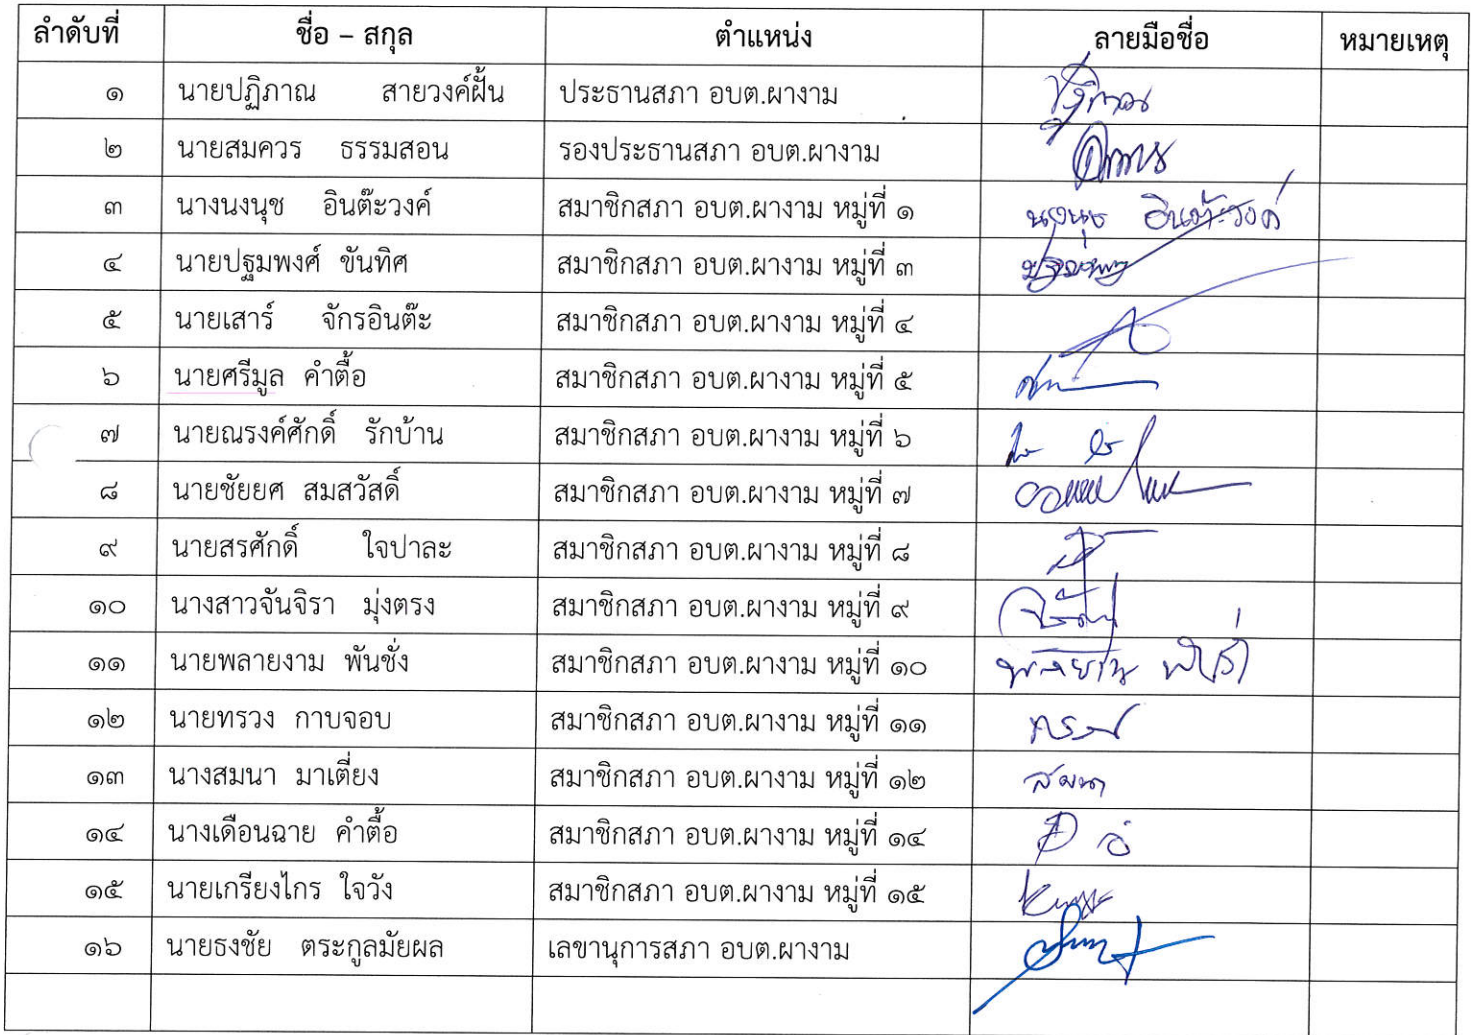 ลำดับที่ ชื่อ – สกุล ตำแหน่ง ลายมือชื่อ หมายเหตุ
๑ นายปฏิภาณ สายวงค์ฝั้น ประธานสภา อบต.ผางาม
๒ นายสมควร ธรรมสอน รองประธานสภา อบต.ผางาม
๓ นางนงนุช อินต๊ะวงค์ สมาชิกสภา อบต.ผางาม หมู่ที่ ๑ นงนุช อินต๊ะวงค์
๔ นายปฐมพงศ์ ขันทิศ สมาชิกสภา อบต.ผางาม หมู่ที่ ๓
๕ นายเสาร์ จักรอินต๊ะ สมาชิกสภา อบต.ผางาม หมู่ที่ ๔
๖ นายศรีมูล คำตื้อ สมาชิกสภา อบต.ผางาม หมู่ที่ ๕
๗ นายณรงค์ศักดิ์ รักบ้าน สมาชิกสภา อบต.ผางาม หมู่ที่ ๖
๘ นายชัยยศ สมสวัสดิ์ สมาชิกสภา อบต.ผางาม หมู่ที่ ๗
๙ นายสรศักดิ์ ใจปาละ สมาชิกสภา อบต.ผางาม หมู่ที่ ๘
๑๐ นางสาวจันจิรา มุ่งตรง สมาชิกสภา อบต.ผางาม หมู่ที่ ๙
๑๑ นายพลายงาม พันชั่ง สมาชิกสภา อบต.ผางาม หมู่ที่ ๑๐
๑๒ นายทรวง กาบจอบ สมาชิกสภา อบต.ผางาม หมู่ที่ ๑๑
๑๓ นางสมนา มาเตี่ยง สมาชิกสภา อบต.ผางาม หมู่ที่ ๑๒ สมนา
๑๔ นางเดือนฉาย คำตื้อ สมาชิกสภา อบต.ผางาม หมู่ที่ ๑๔
๑๕ นายเกรียงไกร ใจวัง สมาชิกสภา อบต.ผางาม หมู่ที่ ๑๕
๑๖ นายธงชัย ตระกูลมัยผล เลขานุการสภา อบต.ผางาม